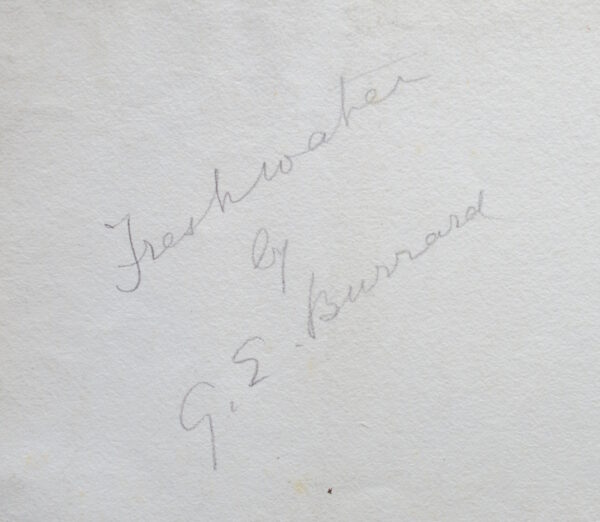 Freshwater
by
G. E. Burrard